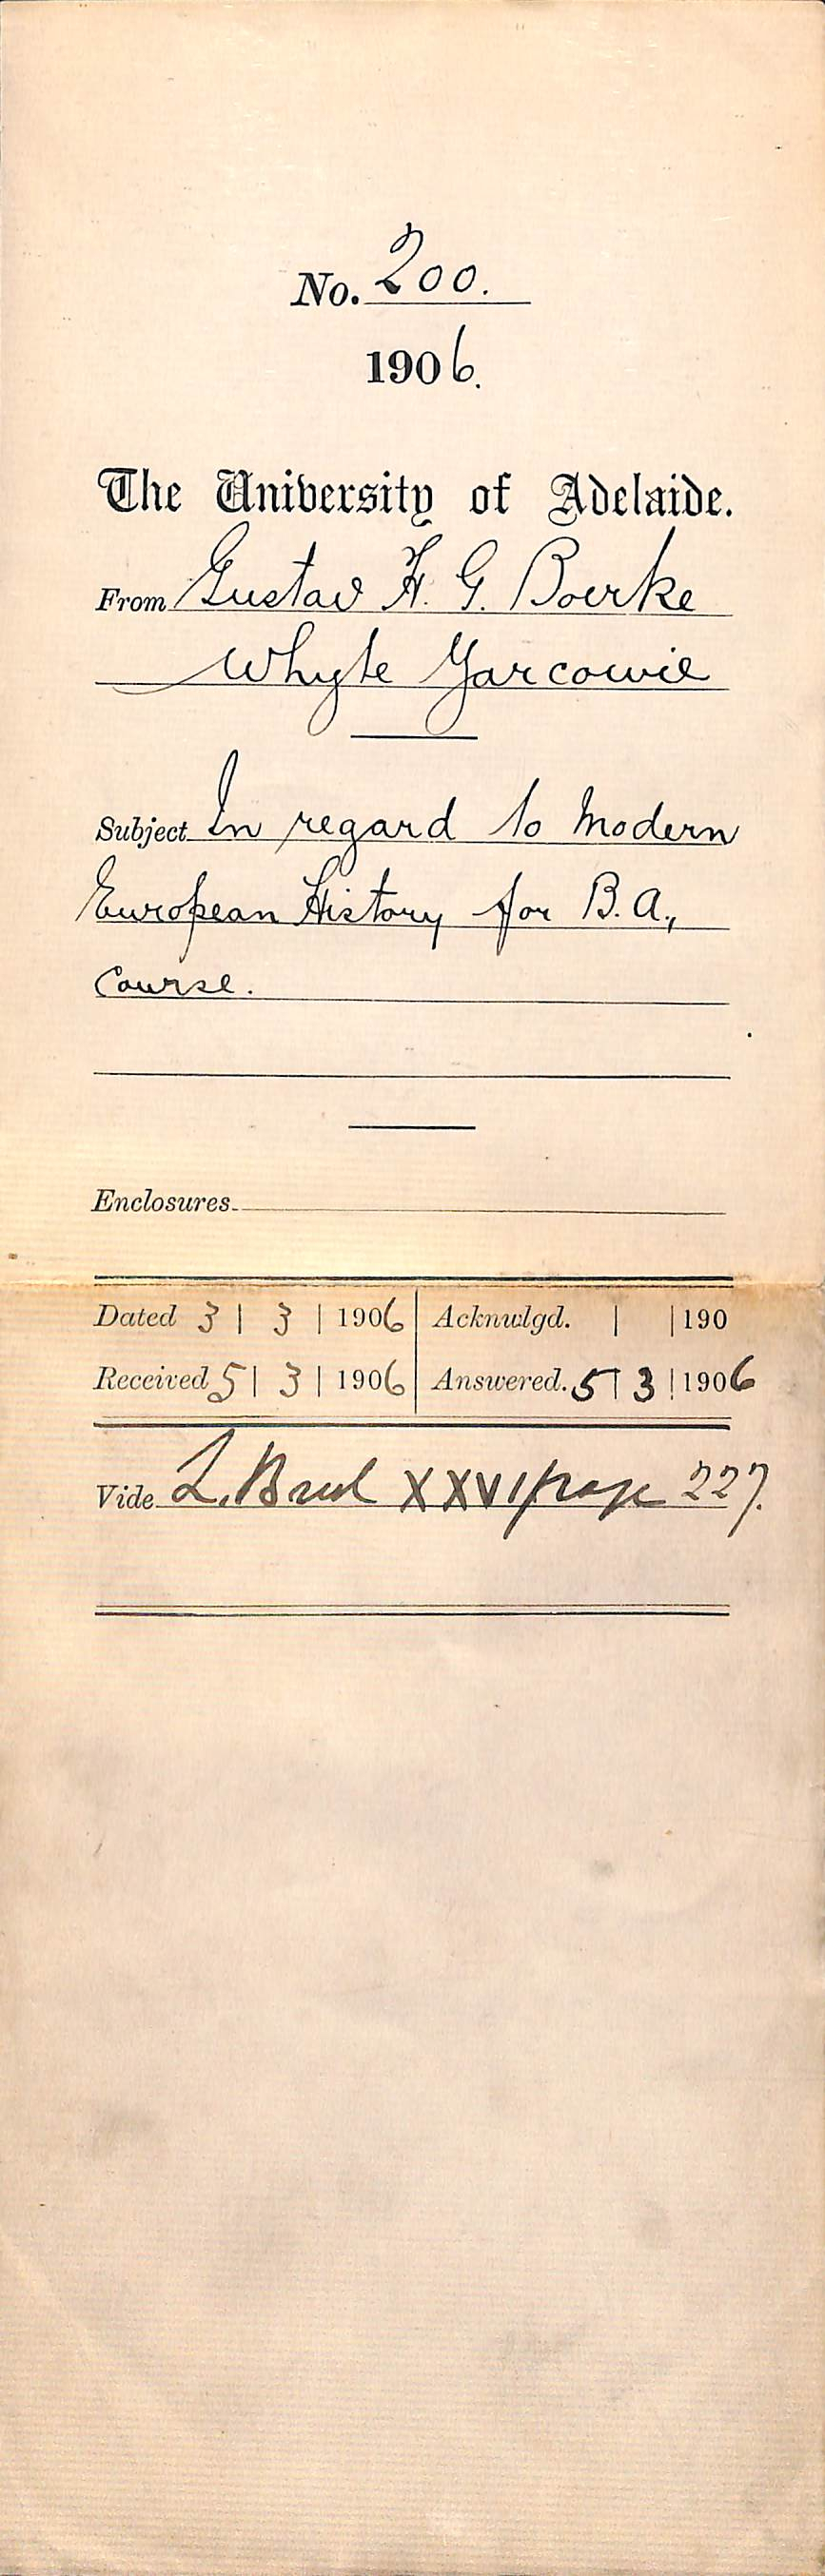 No. 200.
1906.
The University of Adelaide.
From Gustav H. G. Boerke
Whyte Yarcowie
Subject In regard to Modern
European History for B.A.,
Course.
Enclosures
Dated 3 | 3 | 1906 Acknwlgd. | | 190
Received 5 | 3 | 1906 Answered. 5 | 3 | 1906
Vide L. XXVI page 227.